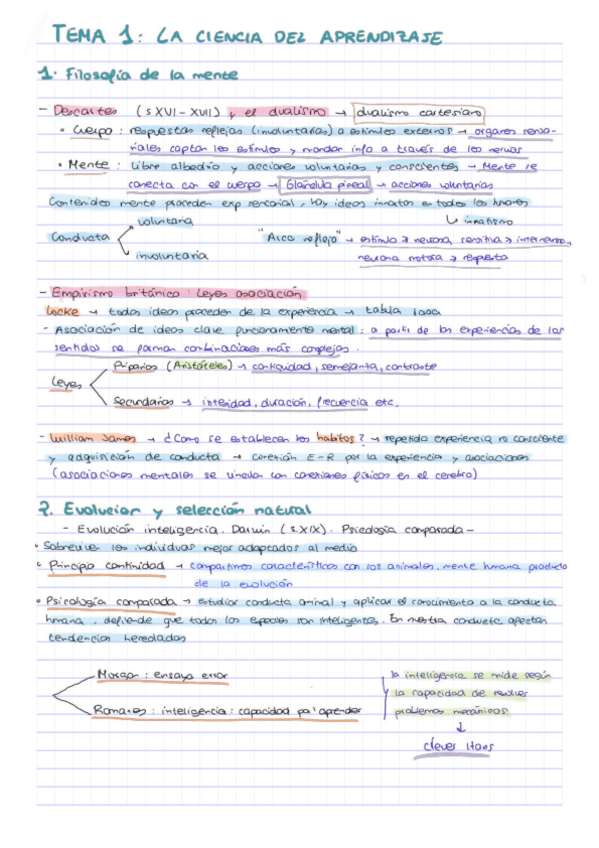 TEMA 1: LA CIENCIA DEL APRENDIZAJE
1. Filosofía de la mente
- Descartes (s XVI - XVII) y el dualismo → dualismo cartesiano
• Cuerpo: respuestas reflejas (involuntarias) a estímulos externos → organos senso-
riales captan los estímulos y mandar info a través de los nervios
• Mente: Libre albedrío y acciones voluntarias y conscientes → Mente se
conecta con el cuerpo → Glándula pineal → acciones voluntarias
Contenidos mente proceden exp sensorial, hay ideas innatas en todos los
↳ innatismo
Conducta
voluntaria
involuntaria
"Arco reflejo" → estímulo → neurona sensitiva → interneurona,
neurona motora → respuesta
- Empirismo británico: Leyes asociación
Locke → todas ideas proceden de la experiencia → tabla rasa
- Asociación de ideas clave funcionamiento mental: a partir de las experiencias de los
sentidos se forman combinaciones más complejas.
Leyes
Primarias (Aristóteles) → contiguidad, semejanza, contraste
Secundarias → intensidad, duración, frecuencia etc,
- William James → ¿Como se establecen los habitos? → repetida experiencia no consciente
y adquisición de conducta → conexión E-R por la experiencia y asociaciones
(asociaciones mentales se vinculan con conexiones físicas en el cerebro)
2. Evolucion y selección natural
- Evolución inteligencia. Darwin (s.XIX). Psicología comparada -
• Sobrevive los individuos mejor adaptados al medio
• Principio continuidad → compartimos características con los animales, mente humana producto
de la evolución
• Psicología comparada → estudiar conducta animal y aplicar el conocimiento a la conducta
humana, defiende que todas las especies son inteligentes. En nuestra conducta afectan
tendencias heredadas
Morgan: ensayo error
Romanes: inteligencia: capacidad pa' aprender
la inteligencia se mide según
la capacidad de resolver
problemas mecánicos
↓
clever Hans